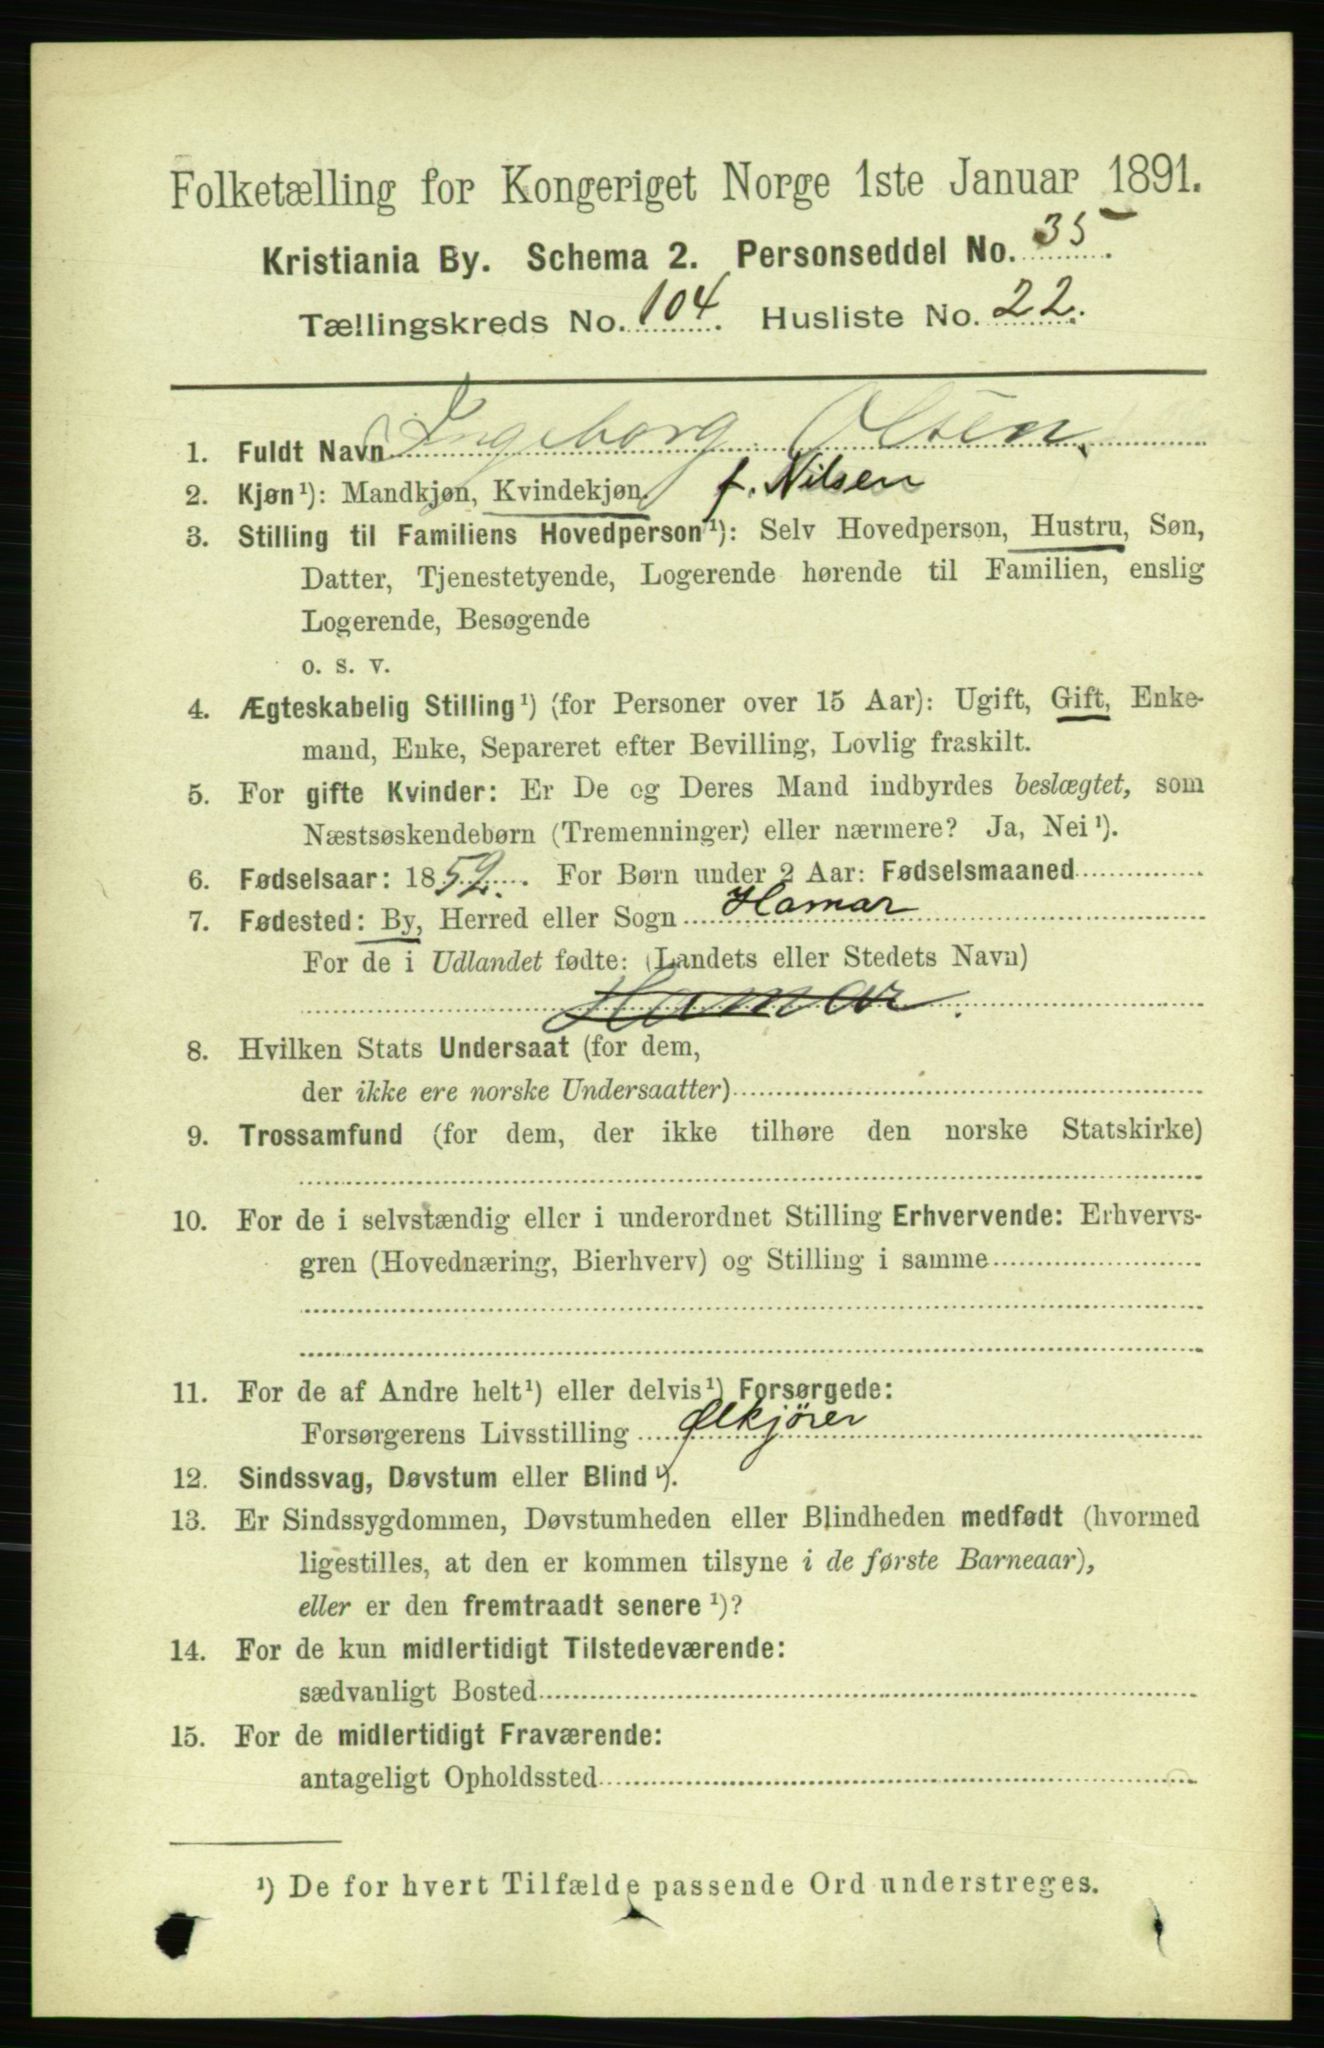 Folketælling for Kongeriget Norge 1ste Januar 1891.
Kristiania By. Schema 2. Personseddel No. 35.
Tællingskreds No. 104. Husliste No. 22.
1. Fuldt Navn Ingeborg Olsen
2. Kjøn¹): Mandkjøn, Kvindekjøn. f. Nilsen
3. Stilling til Familiens Hovedperson¹): Selv Hovedperson, Hustru, Søn,
Datter, Tjenestetyende, Logerende hørende til Familien, enslig
Logerende, Besøgende
o. s. v.
4. Ægteskabelig Stilling¹) (for Personer over 15 Aar): Ugift, Gift, Enke-
mand, Enke, Separeret efter Bevilling, Lovlig fraskilt.
5. For gifte Kvinder: Er De og Deres Mand indbyrdes beslægtet, som
Næstsøskendebørn (Tremenninger) eller nærmere? Ja, Nei¹).
6. Fødselsaar: 1852. For Børn under 2 Aar: Fødselsmaaned
7. Fødested: By, Herred eller Sogn Hamar
For de i Udlandet fødte: (Landets eller Stedets Navn)
Hamar.
8. Hvilken Stats Undersaat (for dem,
der ikke ere norske Undersaatter)
9. Trossamfund (for dem, der ikke tilhøre den norske Statskirke)
10. For de i selvstændig eller i underordnet Stilling Erhvervende: Erhvervs-
gren (Hovednæring, Bierhverv) og Stilling i samme
11. For de af Andre helt¹) eller delvis¹) Forsørgede:
Forsørgerens Livsstilling Ølkjörer
12. Sindssvag, Døvstum eller Blind¹).
13. Er Sindssygdommen, Døvstumheden eller Blindheden medfødt (hvormed
ligestilles, at den er kommen tilsyne i de første Barneaar),
eller er den fremtraadt senere¹)?
14. For de kun midlertidigt Tilstedeværende:
sædvanligt Bosted
15. For de midlertidigt Fraværende:
antageligt Opholdssted
¹) De for hvert Tilfælde passende Ord understreges.